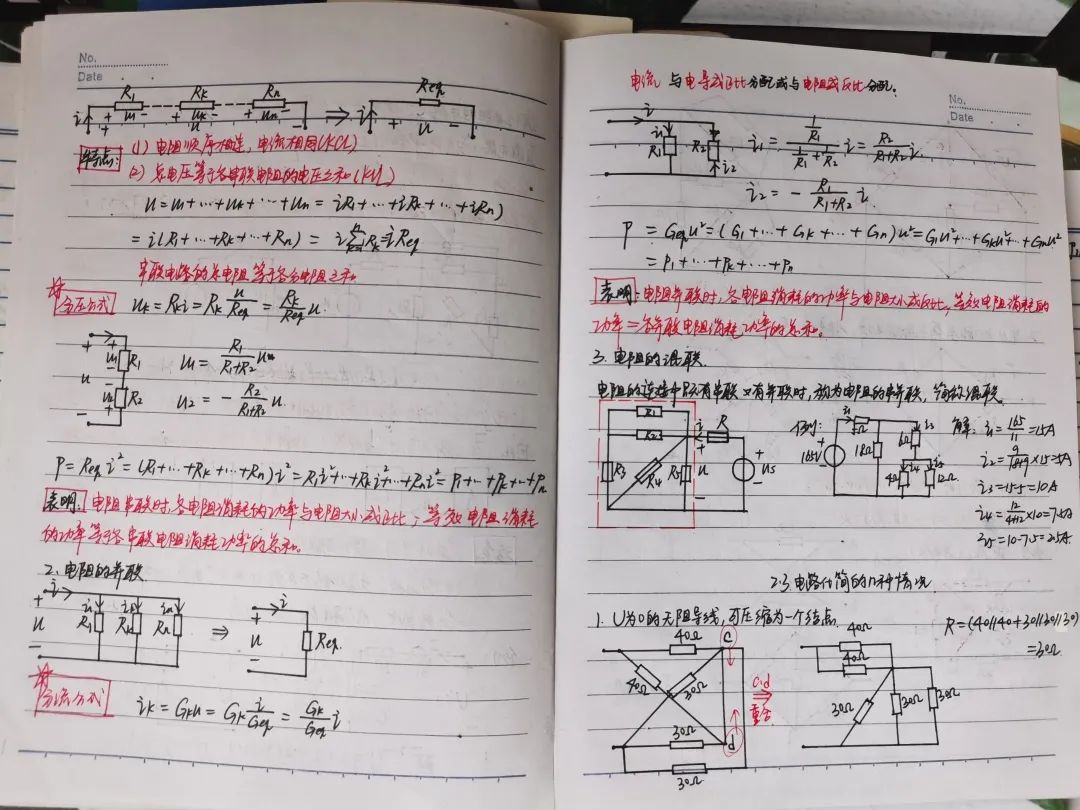 No.
Date
R₁ Rk Rn Req
i + u₁ - + uk - + un - ⇒ i + u -
特点: (1) 电阻顺序相连,电流相同(KCL)
(2) 总电压等于各串联电阻的电压之和(KVL)
u = u₁ + ⋯ + uk + ⋯ + un = iR₁ + ⋯ + iRk + ⋯ + iRn)
= i(R₁ + ⋯ + Rk + ⋯ + Rn) = i∑Rk = iReq
串联电路的总电阻等于各分电阻之和.
☆
分压公式 uk = Rki = Rk u/Req = Rk/Req u.
+ + u₁ - R₁ u₁ = R₁/(R₁+R₂) u
u + u₂ - R₂ u₂ = - R₂/(R₁+R₂) u
-
P = Req i² = (R₁ + ⋯ + Rk + ⋯ + Rn)i² = R₁i² + ⋯ + Rki² + ⋯ + Rni² = P₁ + ⋯ + Pk + ⋯ + Pn
表明: 电阻串联时,各电阻消耗的功率与电阻大小成正比;等效电阻消耗
的功率等于各串联电阻消耗功率的总和。
2. 电阻的并联
+ i i₁ ik in + i
u R₁ Rk Rn ⇒ u Req
- -
☆
分流公式 ik = Gku = Gk i/Geq = Gk/Geq i
电流 与电导成正比分配或与电阻成反比分配.
No.
Date
i i₁ R₁ R₂ i₂ i₁ = (1/R₁)/(1/R₁ + R₂) i = R₂/(R₁+R₂) i.
i₂ = - R₁/(R₁+R₂) i
P = Geq u² = (G₁ + ⋯ + Gk + ⋯ + Gn)u² = G₁u² + ⋯ + Gku² + ⋯ + Gnu²
= P₁ + ⋯ + Pk + ⋯ + Pn
表明: 电阻并联时,各电阻消耗的功率与电阻大小成反比,等效电阻消耗的
功率 = 各并联电阻消耗功率的总和。
3. 电阻的混联.
电阻的连接中既有串联又有并联时,称为电阻的串并联,简称混联.
R₁ R₂ R₃ R₄ R₅ i R + u - + us -
例: 165V i₁ 5Ω 18Ω i₃ 6Ω i₄ 4Ω i₅ 12Ω
解: i₁ = 165/11 = 15A
i₂ = 9/(18+9) × 15 = 5A
i₃ = 15-5 = 10A
i₄ = 12/(4+12) × 10 = 7.5A
i₅ = 10-7.5 = 2.5A
2.3. 电路化简的几种情况
1. U为0的无阻导线,可压缩为一个结点.
R = (40//40 + 30//30//30)
= 30Ω.
40Ω c 40Ω 30Ω 30Ω d 30Ω
c,d
⇒
重合
40Ω 40Ω 30Ω 30Ω 30Ω